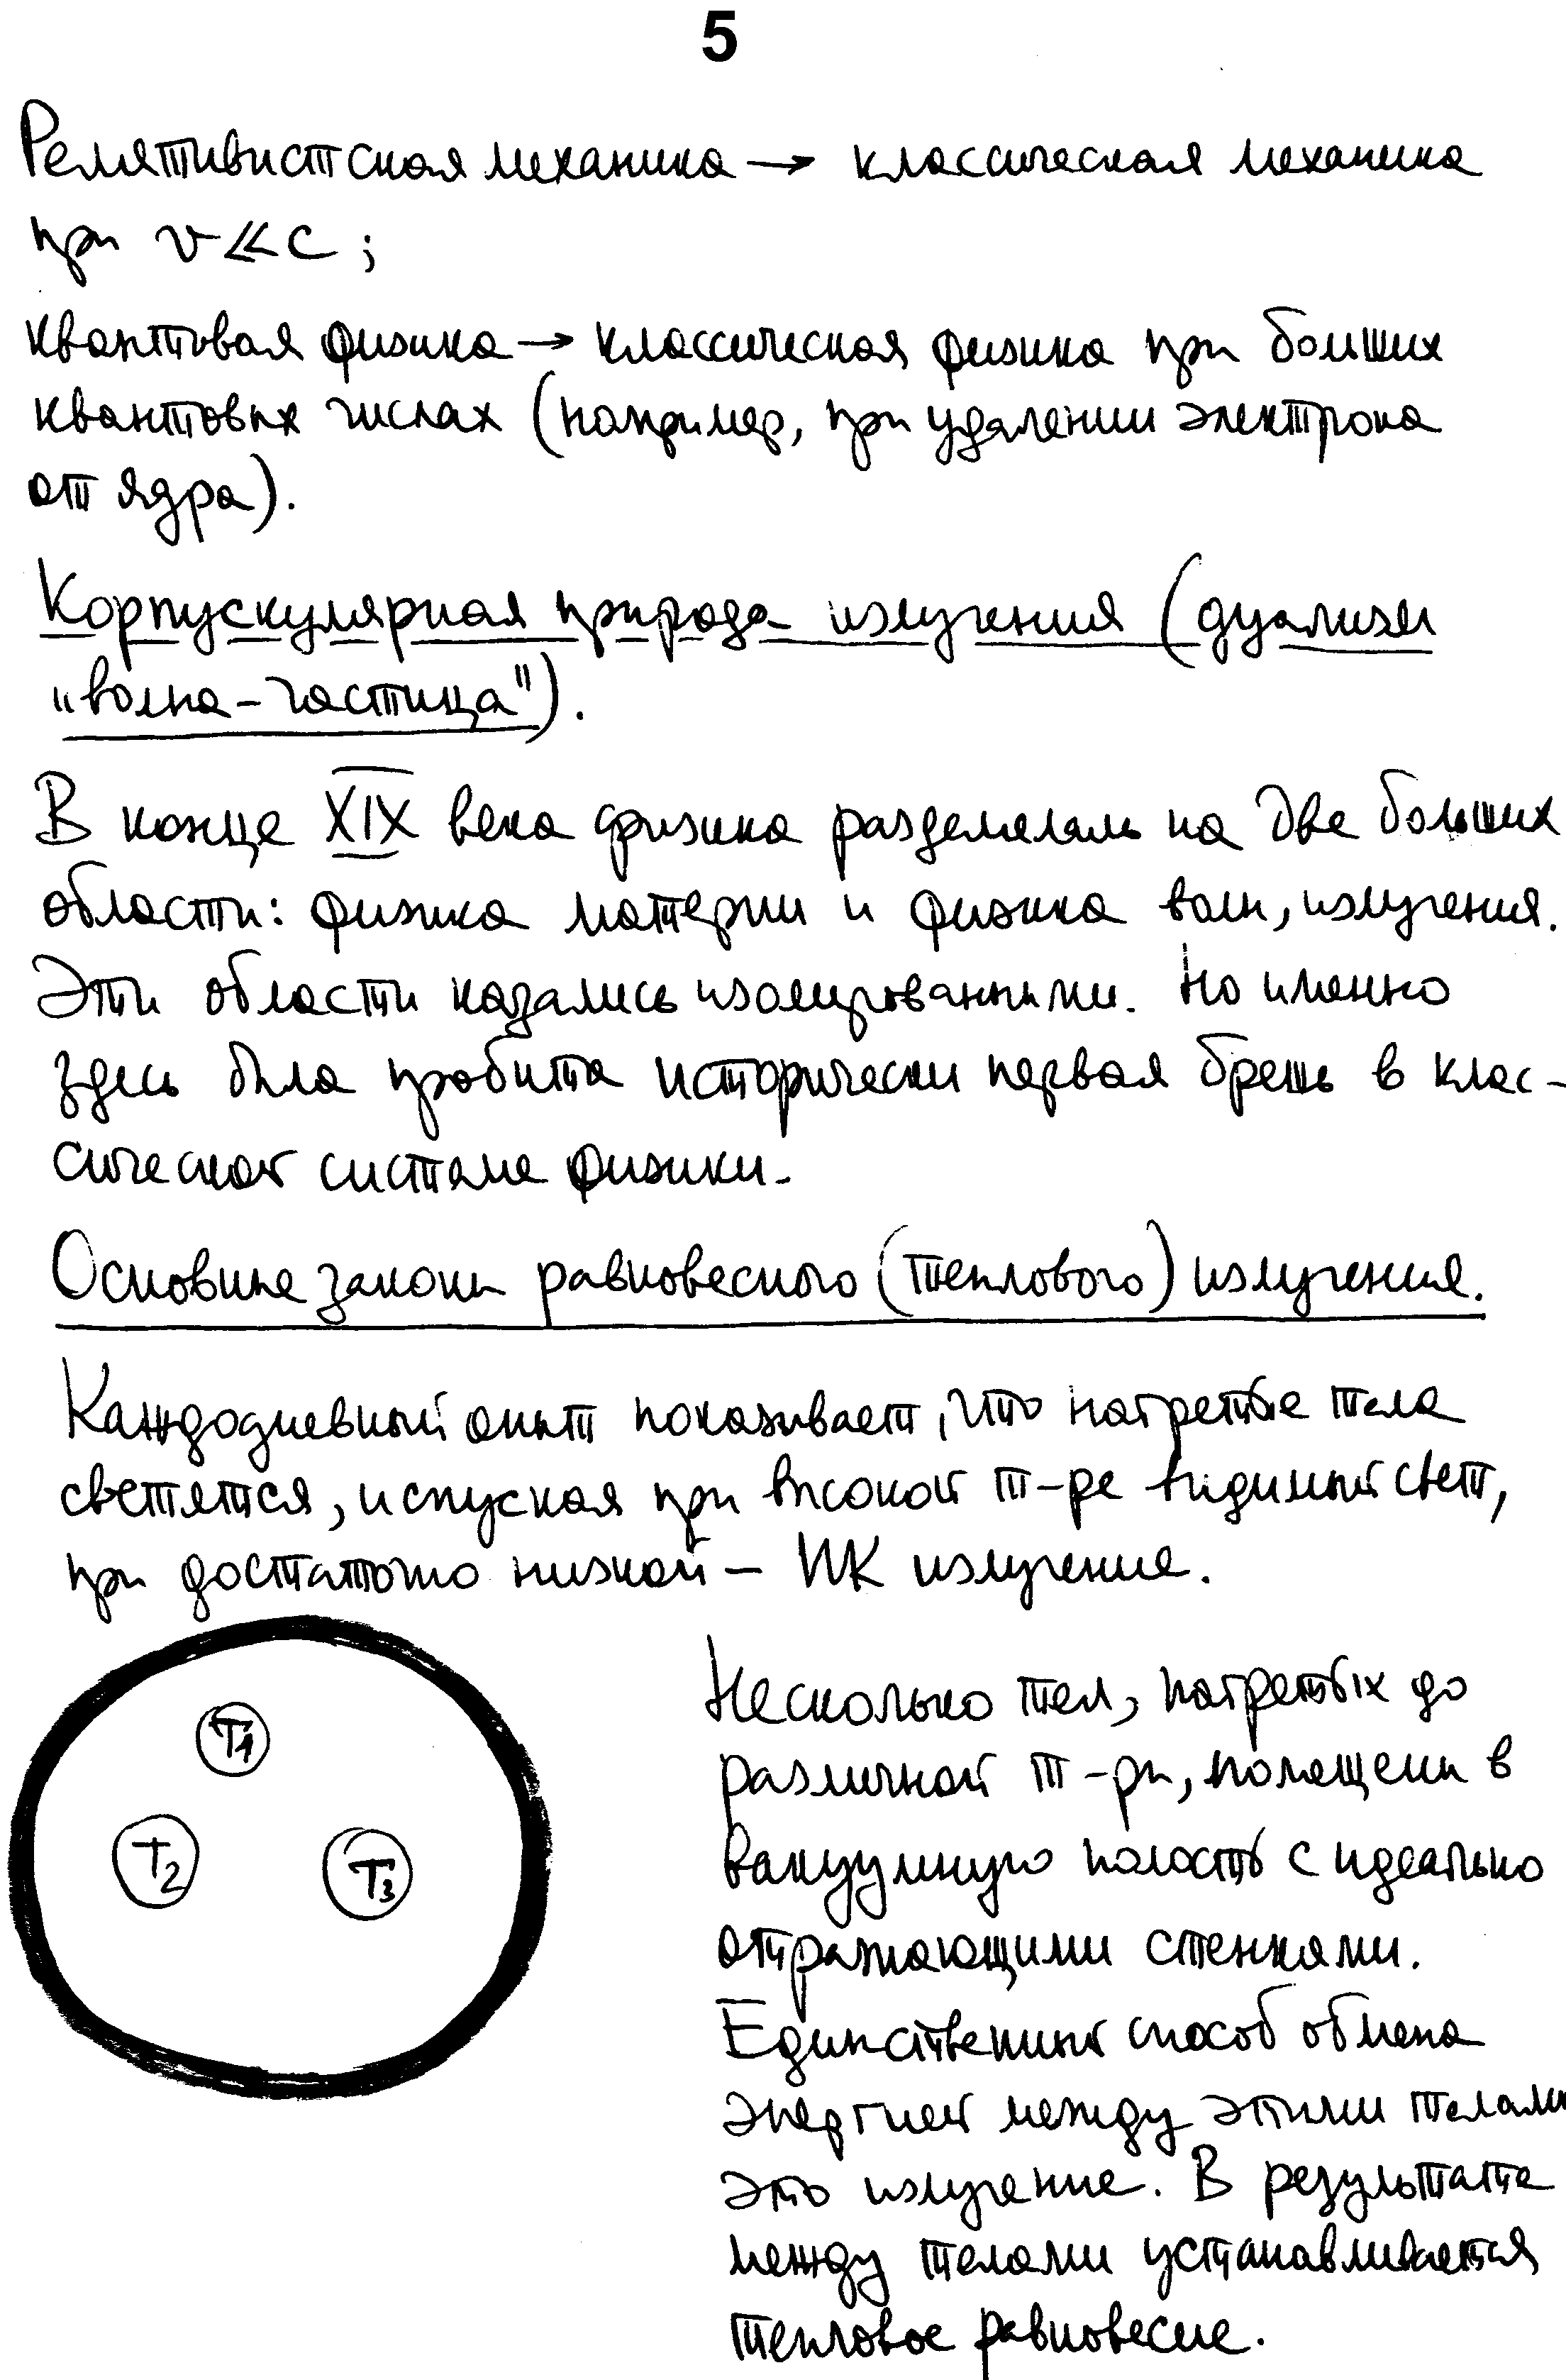 5
Релятивистская механика → классическая механика
при v ≪ c ;
квантовая физика → классическая физика при больших
квантовых числах (например, при удалении электрона
от ядра).
Корпускулярная природа излучения (дуализм
"волна-частица").
В конце XIX века физика разделялась на две больших
области: физика материи и физика волн, излучения.
Эти области казались изолированными. Но именно
здесь была пробита исторически первая брешь в клас-
сической системе физики.
Основные законы равновесного (теплового) излучения.
Каждодневный опыт показывает, что нагретые тела
светятся, испуская при высокой т-ре видимый свет,
при достаточно низкой – ИК излучение.
T1
T2
T3
Несколько тел, нагретых до
различной т-ры, помещены в
вакуумную полость с идеально
отражающими стенками.
Единственный способ обмена
энергией между этими телами
это излучение. В результате
между телами устанавливается
тепловое равновесие.